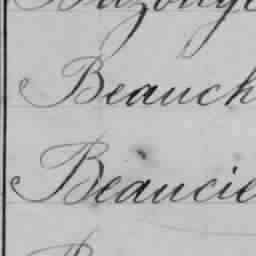 Beauch
Beaucie